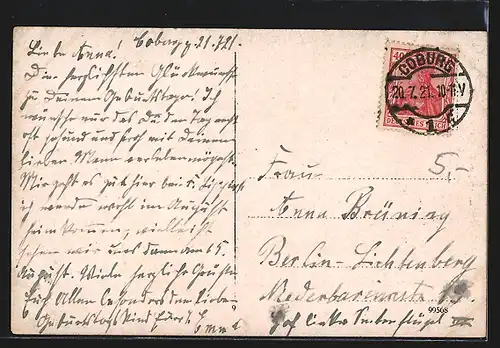 Coburg 21.7.21.
Liebe Anna!
Die herzlichsten Glückwünsche
zu Deinem Geburtstage. Ich
wünsche nur das Du den Tag recht
oft gesund und froh mit Deinem
lieben Mann verleben mögest.
Mir geht es gut hier bei
ich werde wohl im August
heim kommen, vielleicht
sehen wir uns dann am 15.
August. Viele herzliche Grüsse an
Euch Allen besonders dem lieben
Geburtstagskind
Emma
40
COBURG
20.7.21. 10-11V
* 1
DEUTSCHES REICH
5,-
Frau
Anna Brüning
Berlin-Lichtenberg
Niederbarnimstr.
Hof linker Seitenflügel
99508